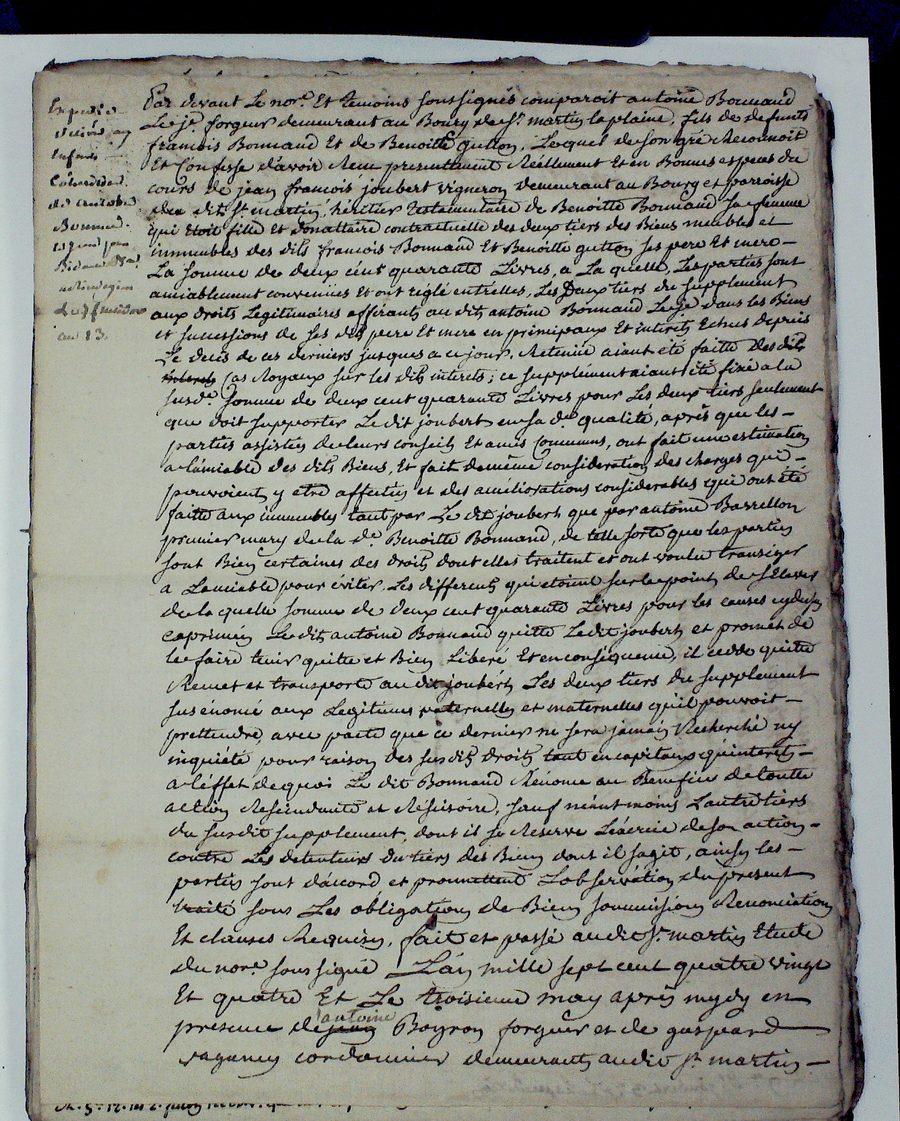 Expedié
delivré aux
enfants
d'antoine
Bonnand
an 13.
Par devant Le nore. Et temoins soussignés comparoit antoine Bonnand
Le je. forgeur demeurant au Bourg de st. martin la plaine, fils de defunts
francois Bonnand Et de Benoitte gutton, Lequel de son gré Reconnoit
Et Confesse d'avoir Recu presentement Réellement Et en Bonnes especes du
cours de jean francois joubert vigneron demeurant au Bourg et parroisse
du dit st. martin, héritier testamentaire de Benoitte Bonnand sa femme
qui etoit fille et donattaire contractuelle des deux tiers des Biens meubles et
immeubles des dits francois Bonnand Et Benoitte gutton ses pere Et mere –
La somme de deux cent quarante Livres, a La quelle, Les parties sont
amiablement convenües Et ont réglé entr'elles, Les Deux tiers du supplement
aux droits Legitimaires afferants au dit antoine Bonnand Le je. dans les Biens
et successions de ses dits pere Et mere en principaux Et interets Echus depuis
Le decès de ces derniers jusques a ce jour, Retenüe aiant été faitte des dts
interets cas Royaux sur les dits interets; ce supplement aiant été fixé a la
susde. somme de deux cent quarante Livres pour Les deux tiers seulement
que doit supporter Le dit joubert en sa de. qualité, après que les –
parties assistées de leurs conseils Et amis Communs, ont fait une estimation
a l'amiable des dits Biens, Et fait de même consideration des charges qui –
pouvoient y etre affectées et des améliorations considerables qui ont été
faitte aux immeubles tant par Le dit joubert que par antoine Barrellon
premier mary de la de. Benoitte Bonnand, de telle sorte que les parties
sont Bien certaines des droits dont elles traitent et ont voulu transiger
a L'amiable pour éviter Les differents qui etoient sur le point de s'Elever
de la quelle somme de deux cent quarante Livres pour les causes cy dessus
exprimées Le dit antoine Bonnand quitte Le dit joubert et promet de
le faire tenir quitte et Bien Liberé Et en consequence, il cedde quitte
Remet et transporte au dit joubert Les deux tiers du supplement
sus énoncé aux Legitimes paternelles et maternelles qu'il pouvoit –
prettendre, avec pacte que ce dernier ne sera jamais Recherché ny
inquiété pour raison des susdits droits tant en capitaux qu'interets –
a l'effet de quoi Le dit Bonnand Renonce au Benefice de toutte
action Rescindante et Rescisoire, sauf néantmoins L'autre tiers
du susdit supplement, dont il se Reserve L'exercice de son action –
contre Les detenteurs du tiers des Biens dont il s'agit, ainsy les –
parties sont d'accord et promettent L'observation du present
traité sous Les obligations de Biens soumissions Renonciations
Et clauses Requises, fait et passé au dit st. martin Etude
du nore. soussigné L'an mille sept cent quatre vingt
Et quatre Et Le troisieme may après mydy en
presence de jean antoine Boyron forgeur et de gaspard
ragency cordonnier demeurants au dit st. martin –